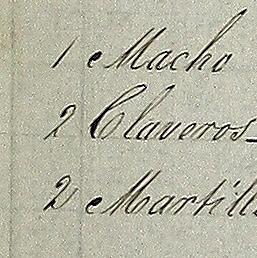 1 Macho
2 Claveros
2 Martill